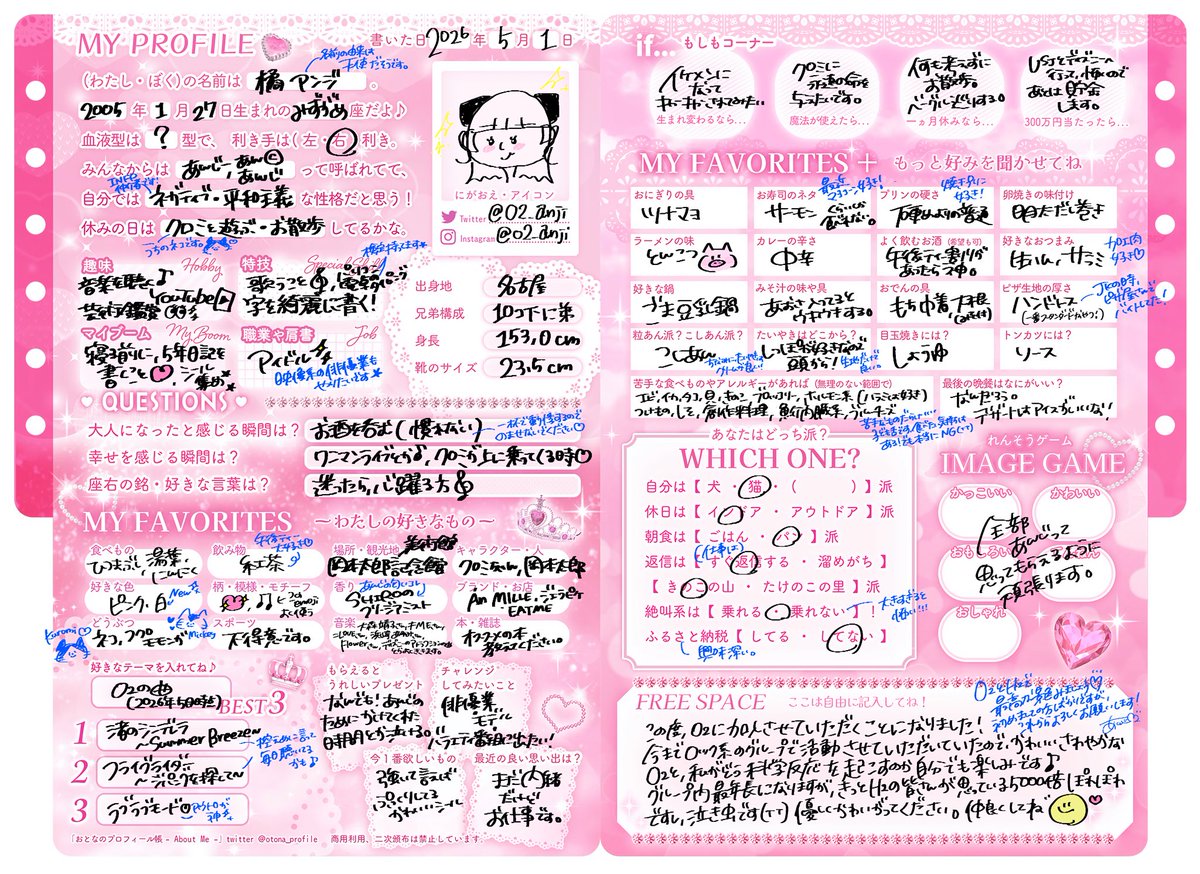 MY PROFILE
書いた日 2026 年 5 月 1 日
名前の由来は
天使だそうです。
(わたし・ぼく)の名前は 橘 アンジ 。
2005 年 1 月 27 日生まれの みずがめ 座だよ♪
血液型は ? 型で、 利き手は(左・右)利き。
みんなからは あんじ、あんⒸ あんじ って呼ばれてて、
自分では ネガティブ・平和主義 な性格だと思う!
休みの日は クロミと遊ぶ・お散歩 してるかな。
うちのネコです。
にがおえ・アイコン
Twitter @02_anji
Instagram @02_anji
趣味 Hobby
音楽を聴く♪
YouTube
芸術鑑賞
特技 Special Skill
歌うこと
字を綺麗に書く!
マイブーム My Boom
寝る前に、5年日記を
書くこと シール
集め
職業や肩書 Job
アイドル
映像系の俳優業も
出身地 名古屋
兄弟構成 10コ下に弟
身長 153.0cm
靴のサイズ 23.5cm
QUESTIONS
大人になったと感じる瞬間は? お酒を呑む(慣れない)
幸せを感じる瞬間は? ワンマンライブとか♪、クロミが上に乗ってくる時
座右の銘・好きな言葉は? 迷ったら、心躍る方
MY FAVORITES ～わたしの好きなもの～
食べもの
ひつまぶし 湯葉
にんにく
飲み物
紅茶
場所・観光地
美術館
岡本太郎記念館
キャラクター・人
クロミちゃん、岡本太郎
好きな色
ピンク・白 New
柄・模様・モチーフ
香り
SHIROの
ブランド・お店
An MILLE、ジェラピケ
EATME
どうぶつ
ネコ、フクロ
モモンガ
Kuromi
Mickey
スポーツ
大得意です。
音楽
本・雑誌
オススメの本
教えてください。
好きなテーマを入れてね♪
O2の曲
(2026年5月時点)
BEST 3
1 渚のシンデレラ
～Summer Breeze～
2 フライングライダー
3 ラブラブモード
もらえると
うれしいプレゼント
なんでも!あんじの
ためにかけてくれた
時間とか泣ける。
チャレンジ
してみたいこと
俳優業
モデル
バラエティ番組に出たい!
今1番欲しいもの
強いて言えば
ぷっくりしてる
かわいいシール
最近の良い思い出は?
まだ内緒
だけど
お仕事です。
「おとなのプロフィール帳 - About Me -」twitter @otona_profile 商用利用、二次頒布は禁止しています。
if... もしもコーナー
イケメンに
なって
キャーキャーされてみたい
生まれ変わるなら…
クロミに
永遠の命を
与えたいです。
魔法が使えたら…
何も考えずに
お散歩。
ベーグル巡りする。
一ヵ月休みなら…
USJとディズニーへ
行って、怖いので
あとは貯金
します。
300万円当たったら…
MY FAVORITES + もっと好みを聞かせてね
おにぎりの具
ツナマヨ
お寿司のネタ
サーモン
くらいしか
食べれない。
プリンの硬さ
卵焼きの味付け
明太だし巻き
ラーメンの味
とんこつ
カレーの辛さ
中辛
よく飲むお酒(希望も可)
午後ティー割りが
あったら神。
好きなおつまみ
生ハム、サラミ
好きな鍋
うま豆乳鍋
みそ汁の味や具
あおさ入ってると
ウキウキする。
おでんの具
もち巾着、大根
ピザ生地の厚さ
ハンドトス
粒あん派?こしあん派?
こしあん
たいやきはどこから?
しっぽが好きなので
頭から!
目玉焼きには?
しょうゆ
トンカツには?
ソース
苦手な食べものやアレルギーがあれば(無理のない範囲で)
エビ、イカ、タコ、貝、きのこ、ブロッコリー、ホルモン系(ハラミは好き)
つけもの、しそ、創作料理
最後の晩餐はなにがいい?
なんだろう。
デザートはアイスがいいな!
あなたはどっち派?
WHICH ONE?
自分は【 犬 ・ 猫 ・ ( ) 】派
休日は【 インドア ・ アウトドア 】派
朝食は【 ごはん ・ パン 】派
(仕事は)
返信は【 すぐ返信する ・ 溜めがち 】
【 きのこの山 ・ たけのこの里 】派
絶叫系は【 乗れる ・ 乗れない 】!
大きすぎると
怖い!!!
ふるさと納税【 してる ・ してない 】
興味深い。
れんそうゲーム
IMAGE GAME
かっこいい
かわいい
おもしろい
おしゃれ
全部
あんじって
思ってもらえるように
頑張ります。
FREE SPACE ここは自由に記入してね!
O2として
この度、O2に加入させていただくことになりました!
今までロック系のグループで活動させていただいていたので、かわいいさわやかな
O2と、私がどう科学反応を起こすのか自分でも楽しみです♪
グループ内最年長になりますが、きっとH2の皆さんが思っている5000倍ぽわぽわ
ですし、泣き虫です(TT) 優しくかわいがってください。仲良くしてね